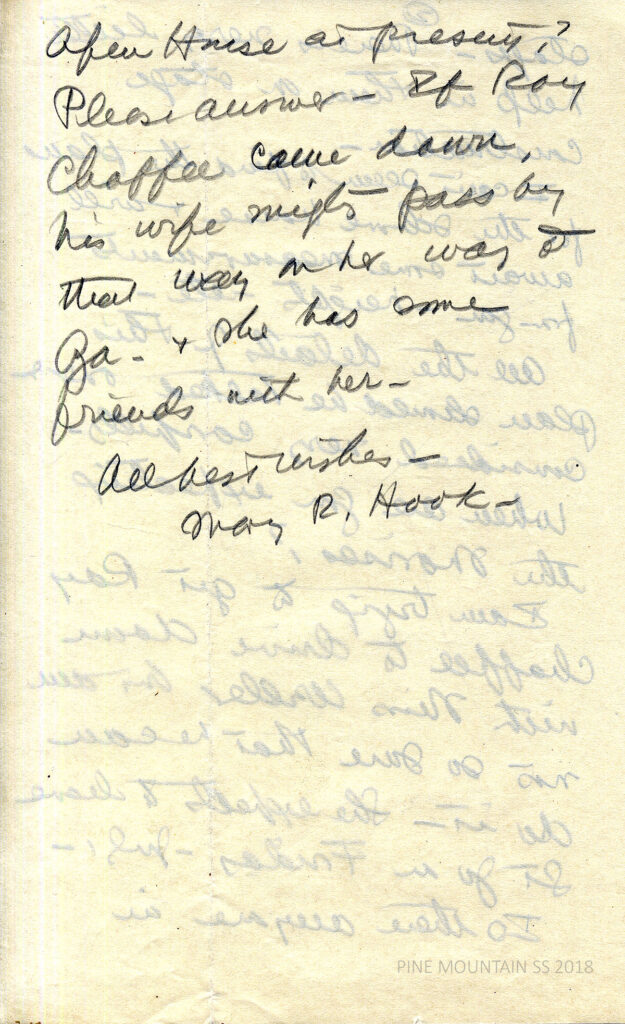 Open House at present?
Please answer – If Ray
Chaffee came down,
his wife might pass by
that way on her way to
Ga – + she has some
friends with her –
All best wishes –
Mary R. Hook –
PINE MOUNTAIN SS 2018